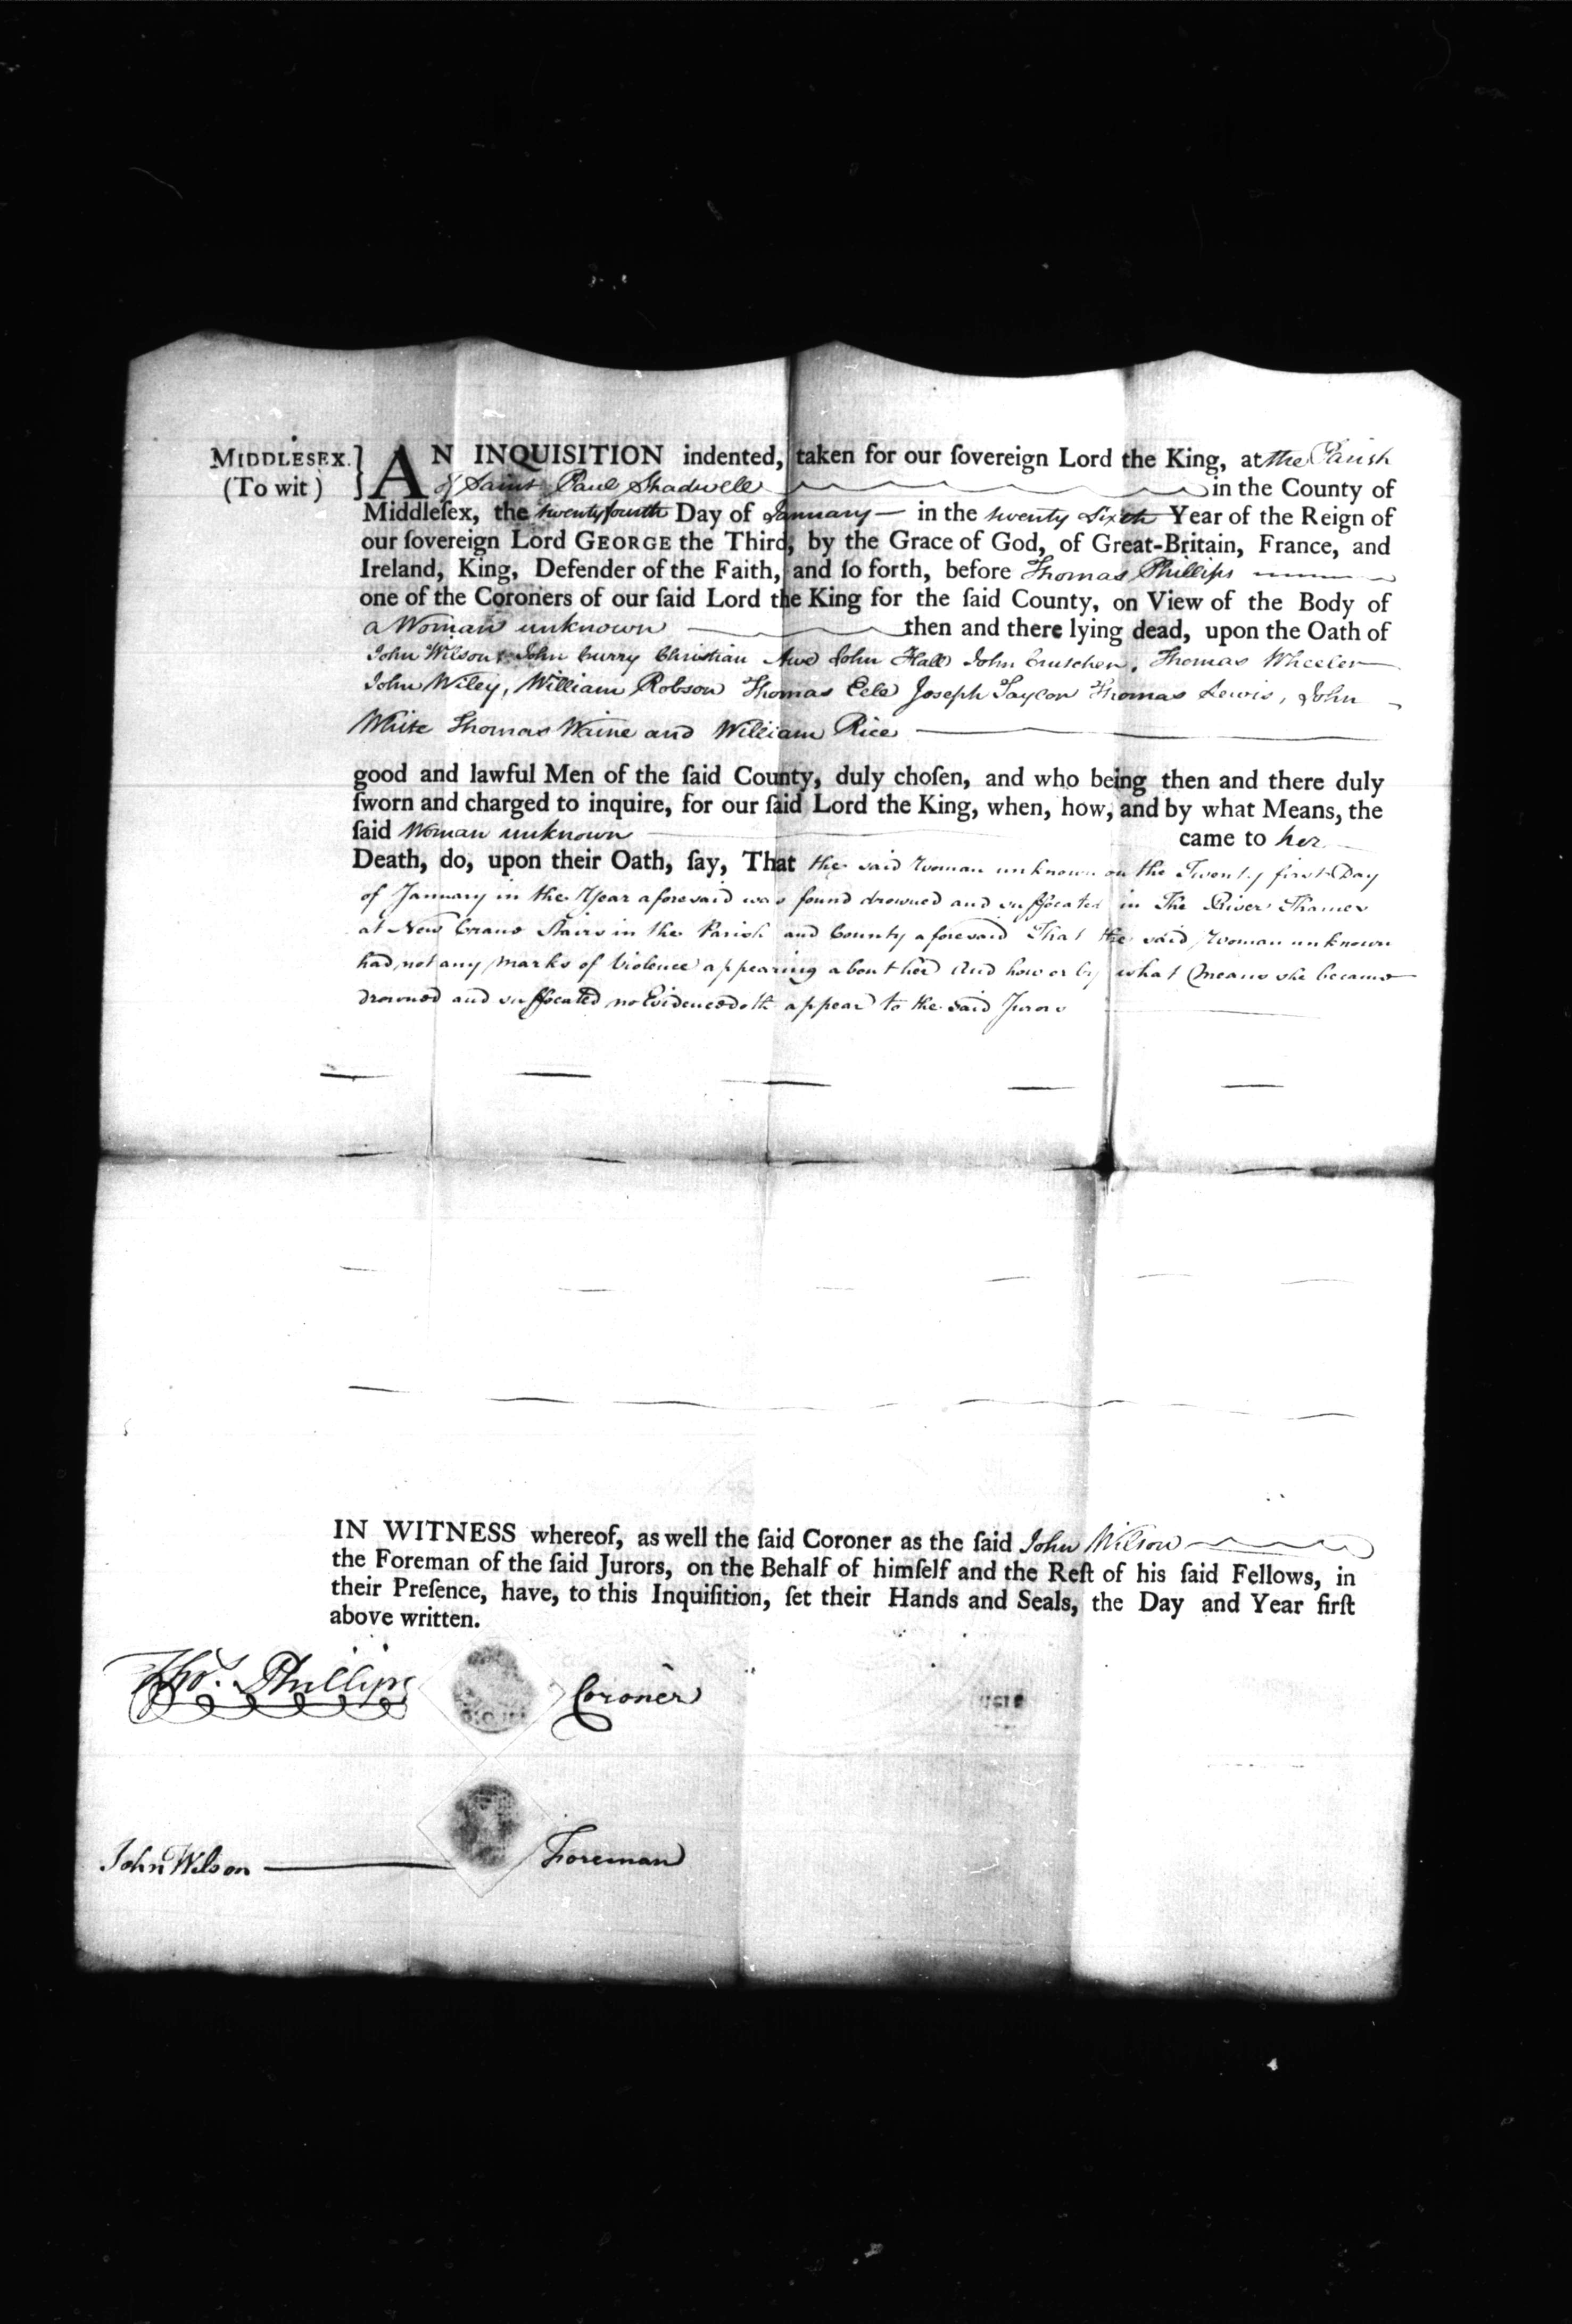 MIDDLESEX. } AN INQUISITION indented, taken for our ſovereign Lord the King, at the Parish
(To wit) of Saint Paul Shadwell in the County of
Middleſex, the twenty fourth Day of January in the twenty Sixth Year of the Reign of
our ſovereign Lord GEORGE the Third, by the Grace of God, of Great-Britain, France, and
Ireland, King, Defender of the Faith, and ſo forth, before Thomas Phillips
one of the Coroners of our ſaid Lord the King for the ſaid County, on View of the Body of
a Woman unknown then and there lying dead, upon the Oath of
John Wilson John Curry Christian John Hall John Thomas Wheeler
John Wiley, William Robson Thomas Eele Joseph Taylor Thomas Lewis, John
White Thomas Waine and William Rice
good and lawful Men of the ſaid County, duly choſen, and who being then and there duly
ſworn and charged to inquire, for our ſaid Lord the King, when, how, and by what Means, the
ſaid Woman unknown came to her
Death, do, upon their Oath, ſay, That the said Woman unknown on the Twenty first Day
of January in the Year aforesaid was found drowned and suffocated in The River Thames
at New Crane Stairs in the Parish and County aforesaid That the said Woman unknown
had not any Marks of Violence appearing about her And how or by what Means she became
drowned and suffocated no Evidence doth appear to the said Jurors
IN WITNESS whereof, as well the ſaid Coroner as the ſaid John Wilson
the Foreman of the ſaid Jurors, on the Behalf of himſelf and the Reſt of his ſaid Fellows, in
their Preſence, have, to this Inquiſition, ſet their Hands and Seals, the Day and Year firſt
above written.
Thos. Phillips Coroner
John Wilson Foreman